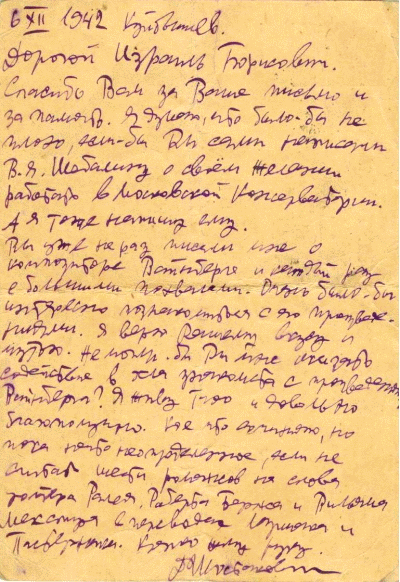 6 XII 1942 Куйбышев.
Дорогой Израиль Борисович.
Спасибо Вам за Ваше письмо и
за память. Я думаю, что было-бы не
плохо, если-бы Вы сами написали
В.Я. Шебалину о своём желании
работать в Московской Консерватории.
А я тоже напишу ему.
Вы уже не раз писали мне о
композиторе Вайнберге и каждый раз
с большими похвалами. Очень было-бы
интересно познакомиться с его произве-
дениями. Я верю Вашему вкусу и
чутью. Не могли-бы Вы мне оказать
содействие в знакомства с произведениями
Вайнберга? Я живу тихо и довольно
благополучно. Кое что сочиняю, но
пока нечто неопределенное, если не
считать шести романсов на слова
Ралея, Роберта Бернса и Вильяма
Шекспира в переводах Маршака и
Пастернака. Крепко жму руку.
Д Шостакович